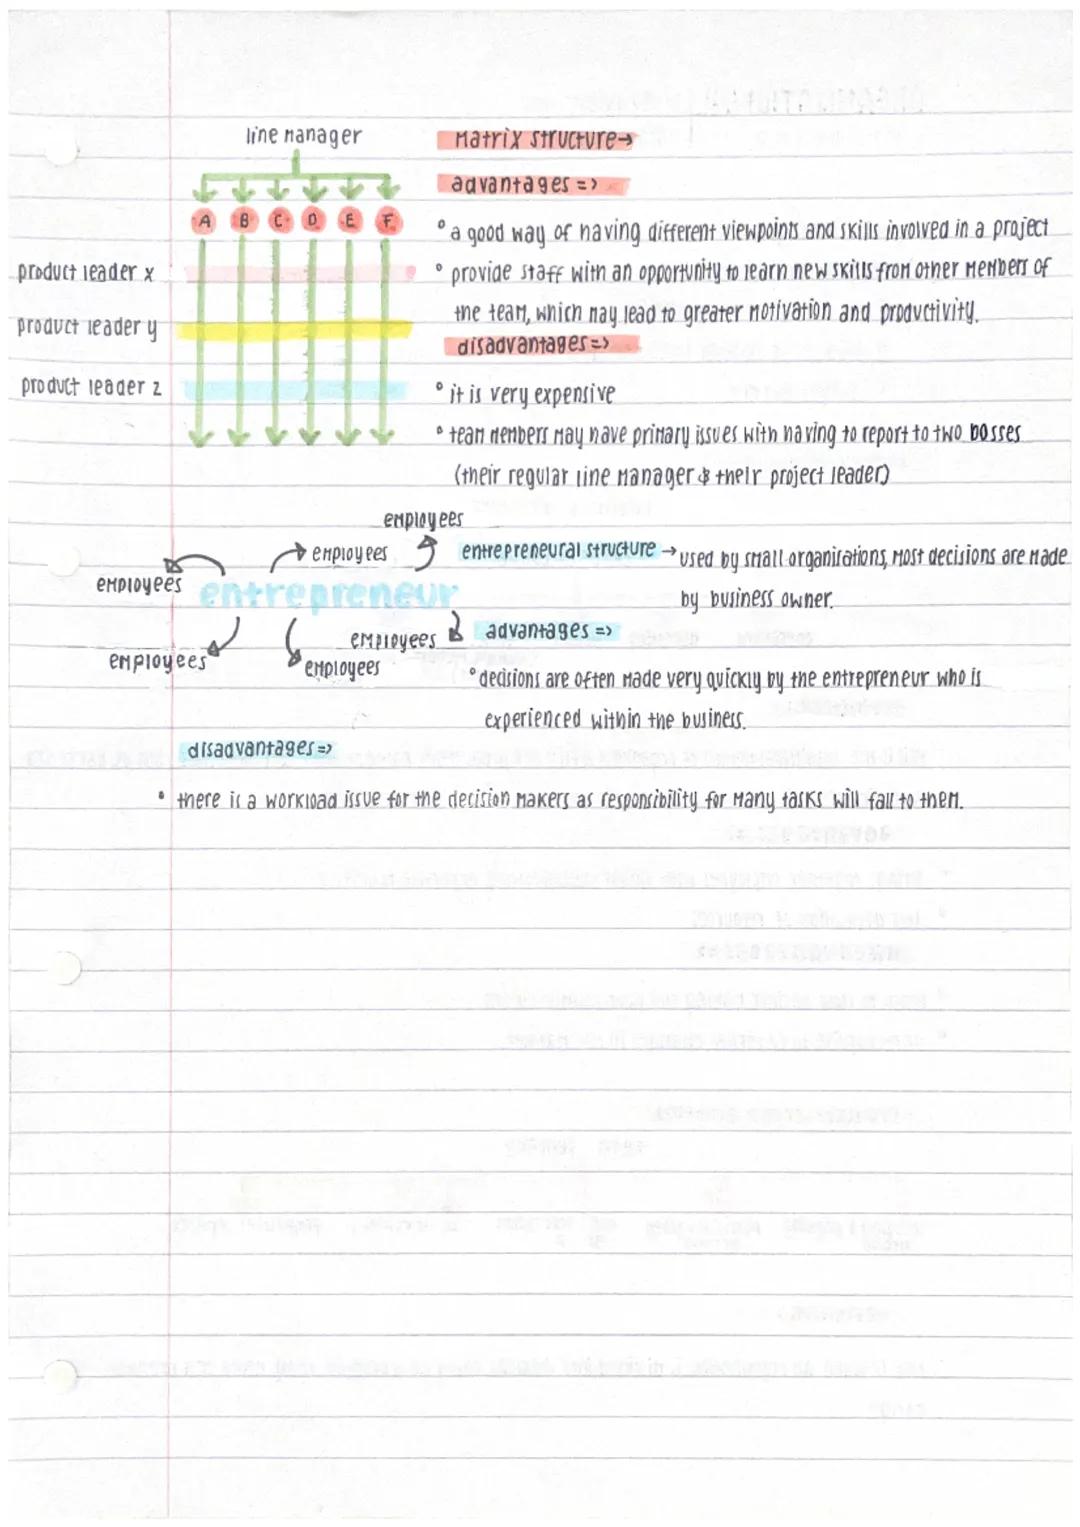 line manager
A B C D E F
product leader x
product leader y
product leader z
Matrix structure→
advantages =>
° a good way of having different viewpoints and skills involved in a project
° provide staff with an opportunity to learn new skills from other members of
the team, which may lead to greater motivation and productivity.
disadvantages =>
° it is very expensive
° team members may have primary issues with having to report to two bosses
(their regular line manager & their project leader)
employees
employees
employees
entrepreneur
employees
employees
employees
entrepreneural structure → used by small organisations, most decisions are made
by business owner.
advantages =>
° decisions are often made very quickly by the entrepreneur who is
experienced within the business.
disadvantages =>
• there is a workload issue for the decision makers as responsibility for many tasks will fall to them.